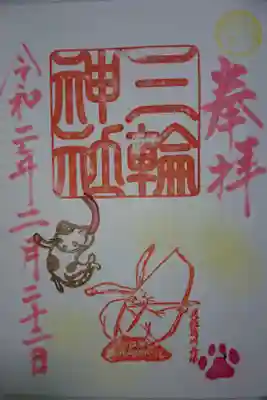 奉拝
三輪神社
令和二年二月二十二日